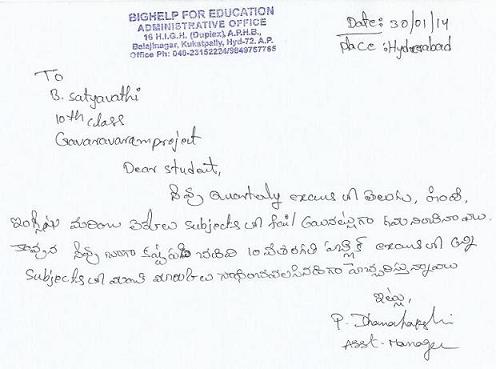 BIGHELP FOR EDUCATION
ADMINISTRATIVE OFFICE
16 H.I.G.H. (Duplex), A.P.H.B.,
Balajinagar, Kukatpally, Hyd-72. A.P.
Office Ph: 040-23152224/9849757765
Date: 30/01/14
Place: Hyderabad
To
B. Satyavathi
10th class
Gavaravaram project
Dear student,
మీరు Quarterly exams లో తెలుగు, హిందీ,
ఇంగ్లీషు మరియు subjects లో fail
కావున మీరు బాగా కష్టపడి చదివి 10 వ తరగతి పబ్లిక్ exams లో అన్ని
subjects లో మంచి మార్కులు
ఇట్లు,
Asst. Manager